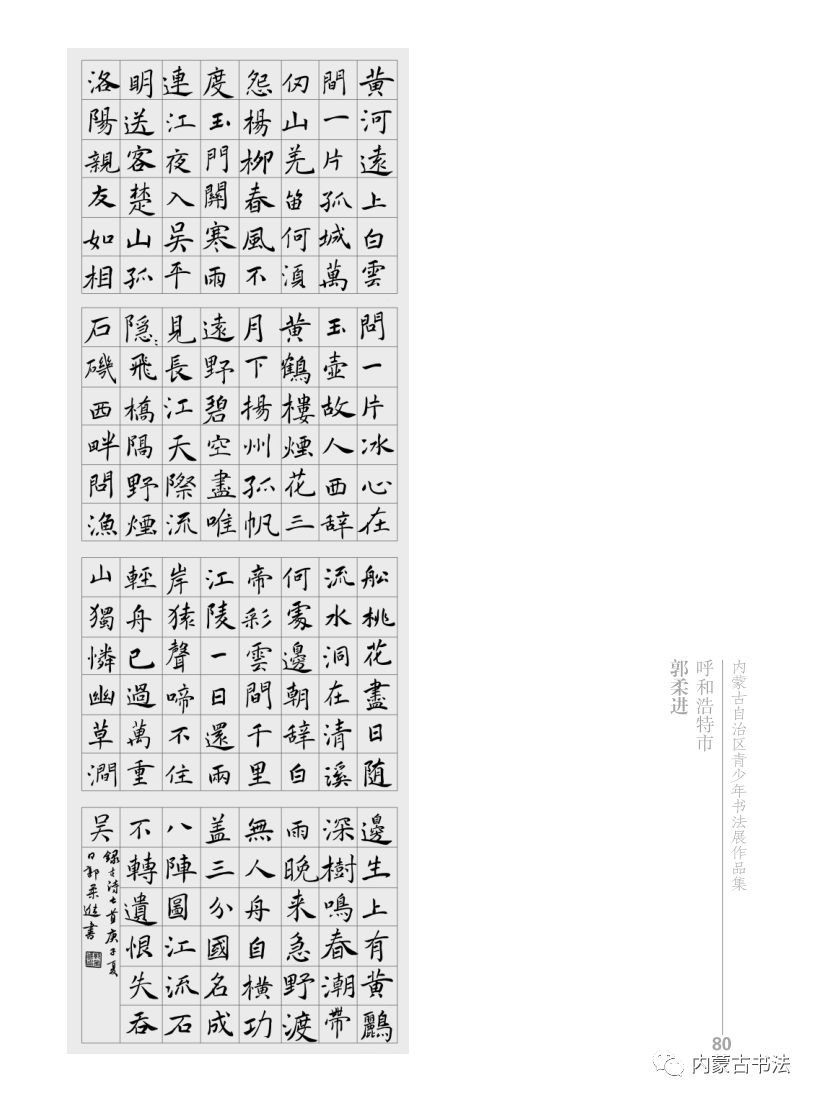 黄河遠上白雲
間一片孤城萬
仞山羌笛何湏
怨楊柳春風不
度玉門關寒雨
連江夜入吴平
明送客楚山孤
洛陽親友如相
問一片冰心在
玉壺故人西辞
黄鶴樓煙花三
月下揚州孤帆
遠野碧空盡唯
見長江天際流
隠〻飛橋隔野煙
石磯西畔問漁
船桃花盡日随
流水洞在清溪
何處邊朝辞白
帝彩雲間千里
江陵一日還兩
岸猿聲啼不住
輕舟已過萬重
山獨憐幽草澗
邊生上有黄鸝
深樹鳴春潮帶
雨晚来急野渡
無人舟自横功
盖三分國名成
八陣圖江流石
不轉遺恨失吞
吴
録古诗七首庚子夏
日郭柔进書
内蒙古自治区青少年书法展作品集
呼和浩特市
郭柔进
80
内蒙古书法